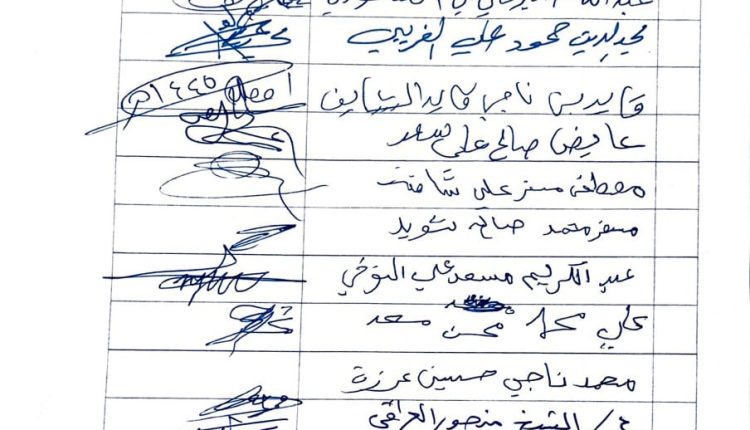 عبدالله
مجدالدين محمود علي الغريبي
قايد بن ناجي قايد الشايف
١٤٤٥
عايض صالح علي سعد
مصطفى مسفر علي
مسفر محمد صالح شويد
عبد الكريم مسعد علي
علي محمد محسن سعد
محمد ناجي حسين عرزة
الشيخ منصور العراقي